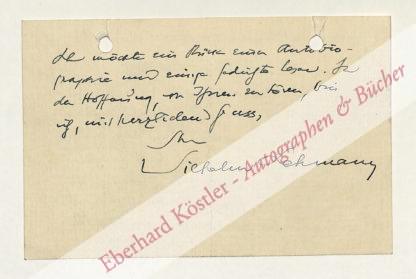 Ich möchte ein Stück einer Autobio-
graphie und einige Gedichte lesen. In
der Hoffnung, von Ihnen zu hören, bin
ich, mit herzlichem Gruss,
Ihr
Wilhelm Lehmann
Eberhard Köstler - Autographen & Bücher